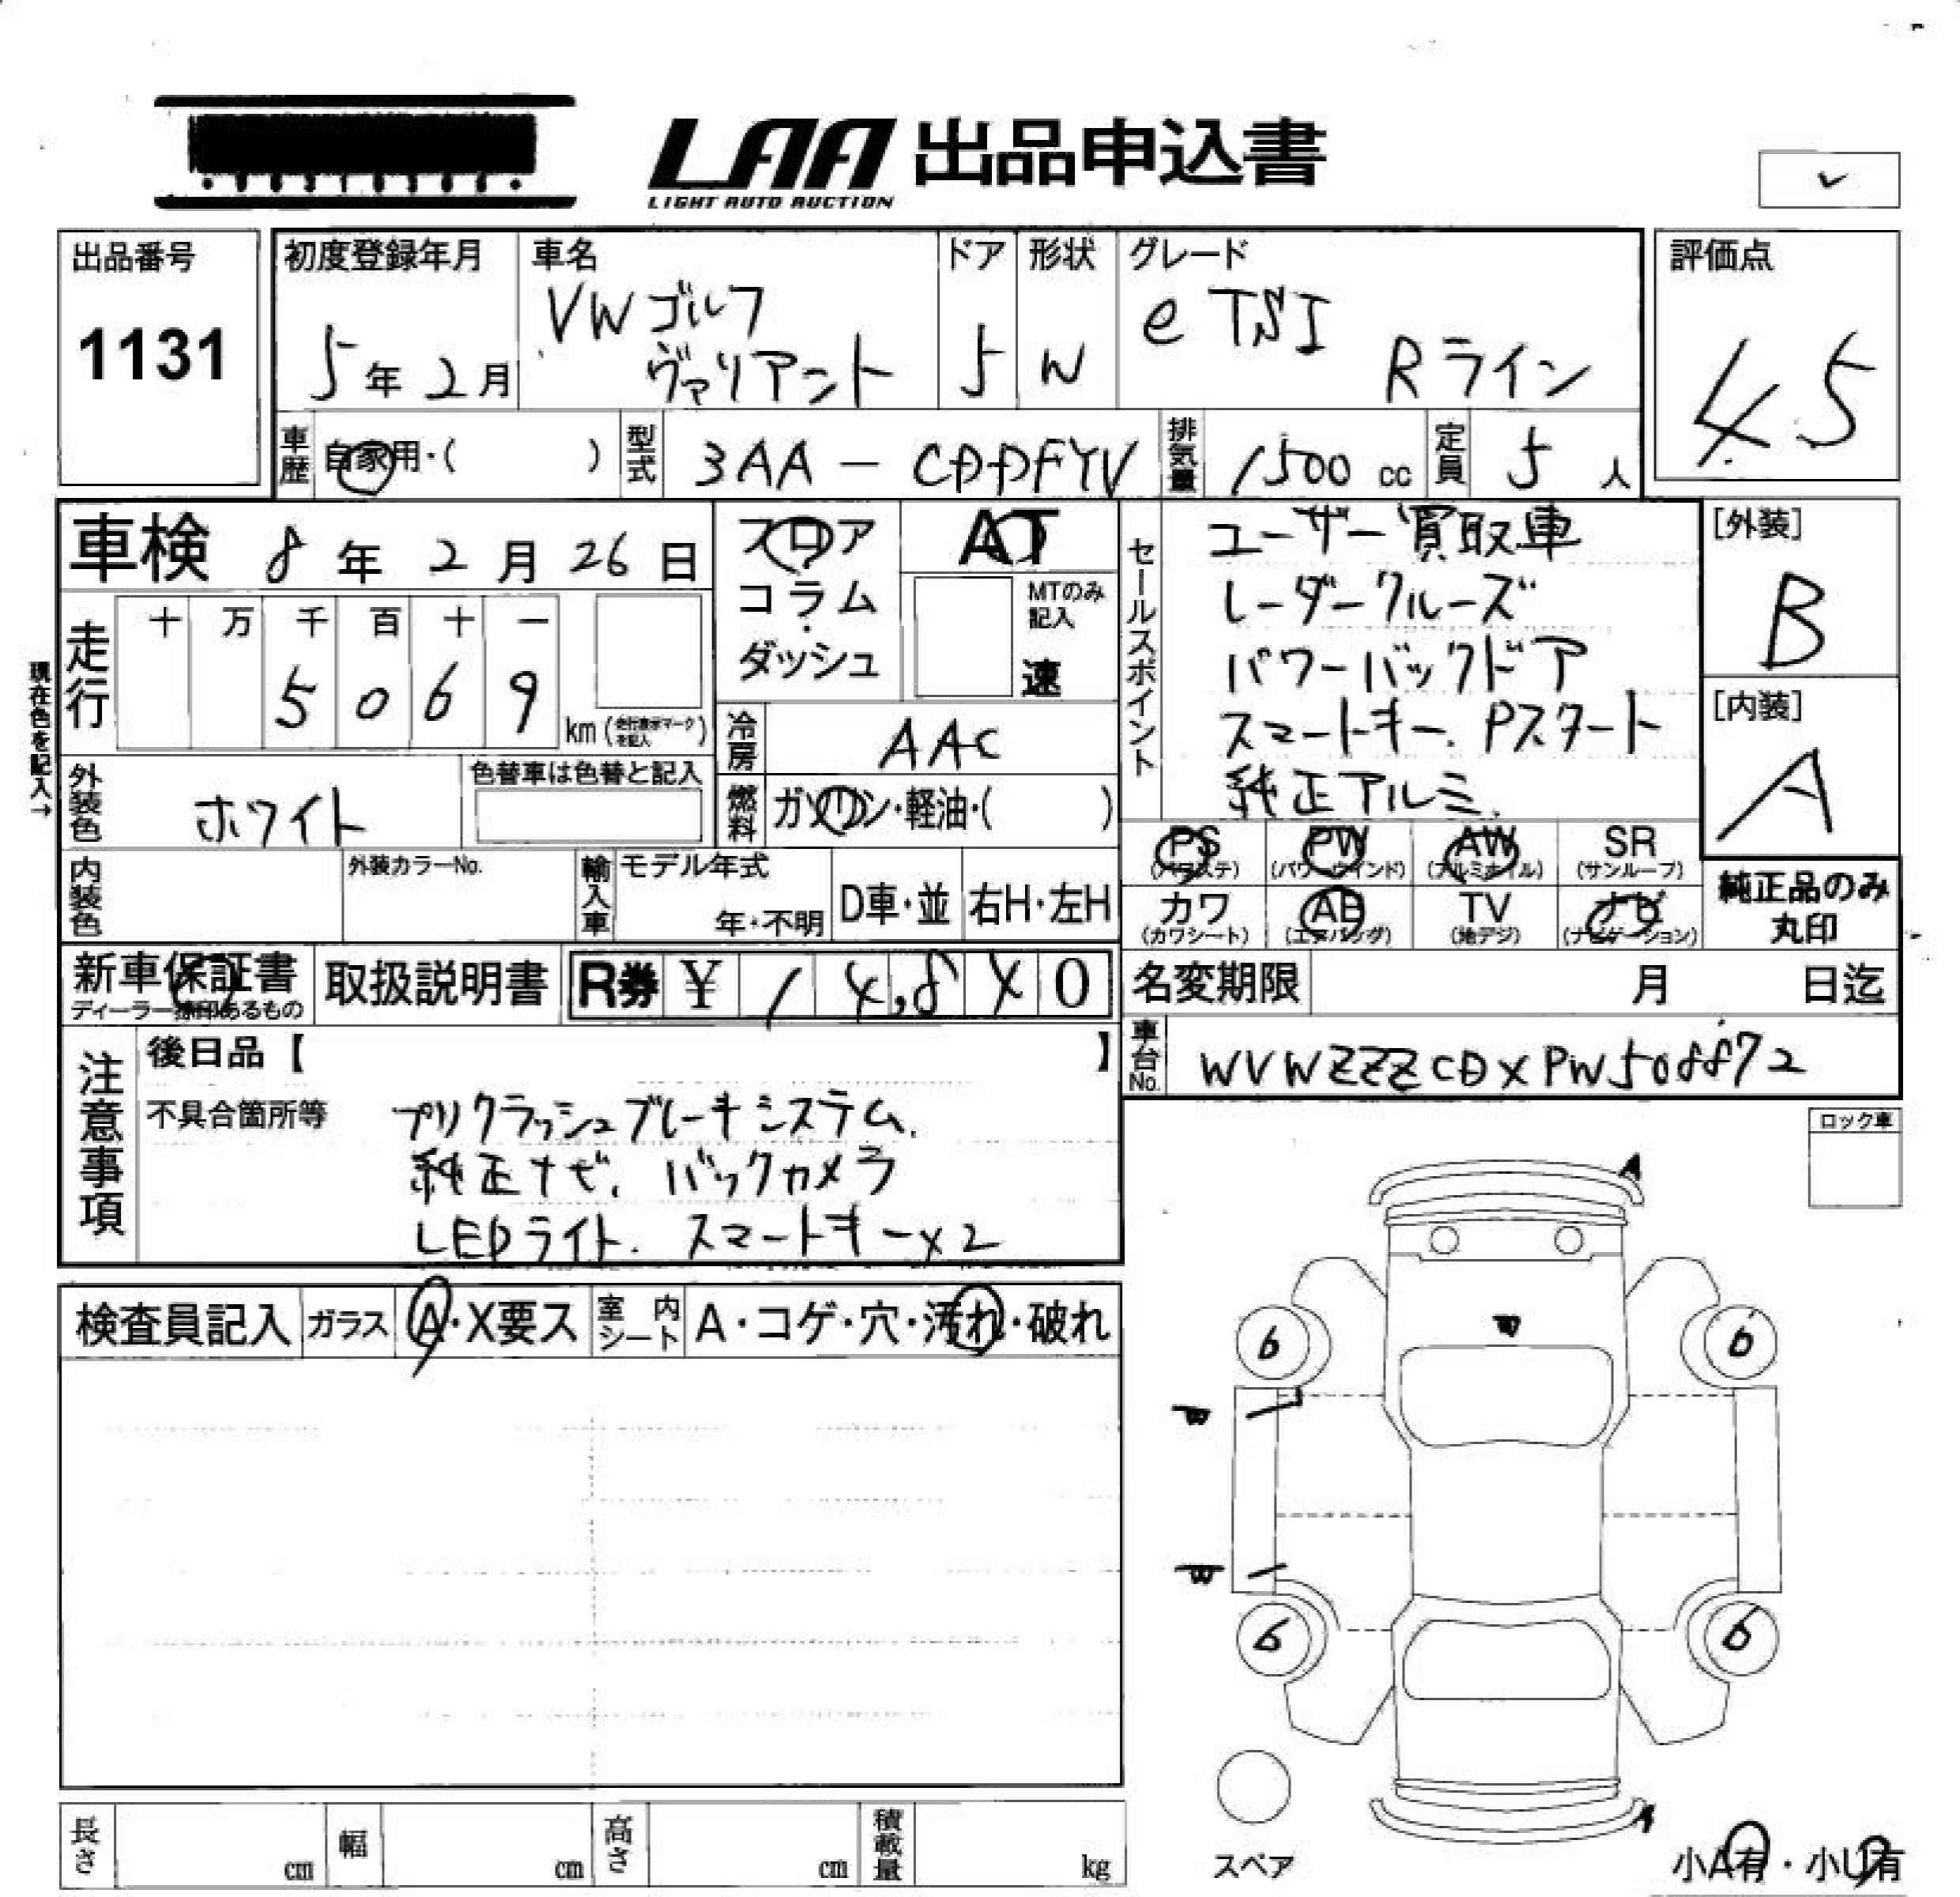 LAA 出品申込書
LIGHT AUTO AUCTION
✓
出品番号
1131
初度登録年月
5年2月
車名
VWゴルフ
ヴァリアント
ドア
5
形状
W
グレード
e TSI
Rライン
評価点
4.5
車歴 自家用・( )
型式 3AA-CDDFYV
排気量 1500 cc
定員 5 人
車検 8年2月26日
フロア
コラム
ダッシュ
AT
MTのみ
記入
速
セールスポイント
ユーザー買取車
レーダークルーズ
パワーバックドア
スマートキー. Pスタート
純正アルミ.
[外装]
B
[内装]
A
走行 十 万 千 百 十 一
5 0 6 9
km (走行表示マークを記入)
現在色を記入→
冷房 AAC
燃料 ガソリン・軽油・( )
外装色 ホワイト
色替車は色替と記入
内装色
外装カラーNo.
輸入車
モデル年式
年・不明
D車・並
右H・左H
PS
(パワステ)
PW
(パワーウインド)
AW
(アルミホイル)
SR
(サンルーフ)
カワ
(カワシート)
AB
(エアバッグ)
TV
(地デジ)
ナビ
(ナビゲーション)
純正品のみ
丸印
新車保証書
ディーラー捺印あるもの
取扱説明書
R券 ¥ 1 4,8 4 0
名変期限 月 日迄
車台No. WVWZZZCDXPW508872
注意事項
後日品【 】
不具合箇所等
プリクラッシュブレーキシステム.
純正ナビ. バックカメラ
LEDライト. スマートキーx2
ロック車
検査員記入
ガラス A・X要ス
室内シート A・コゲ・穴・汚れ・破れ
A
6
6
6
6
A
スペア
小A有・小U有
長さ cm
幅 cm
高さ cm
積載量 kg